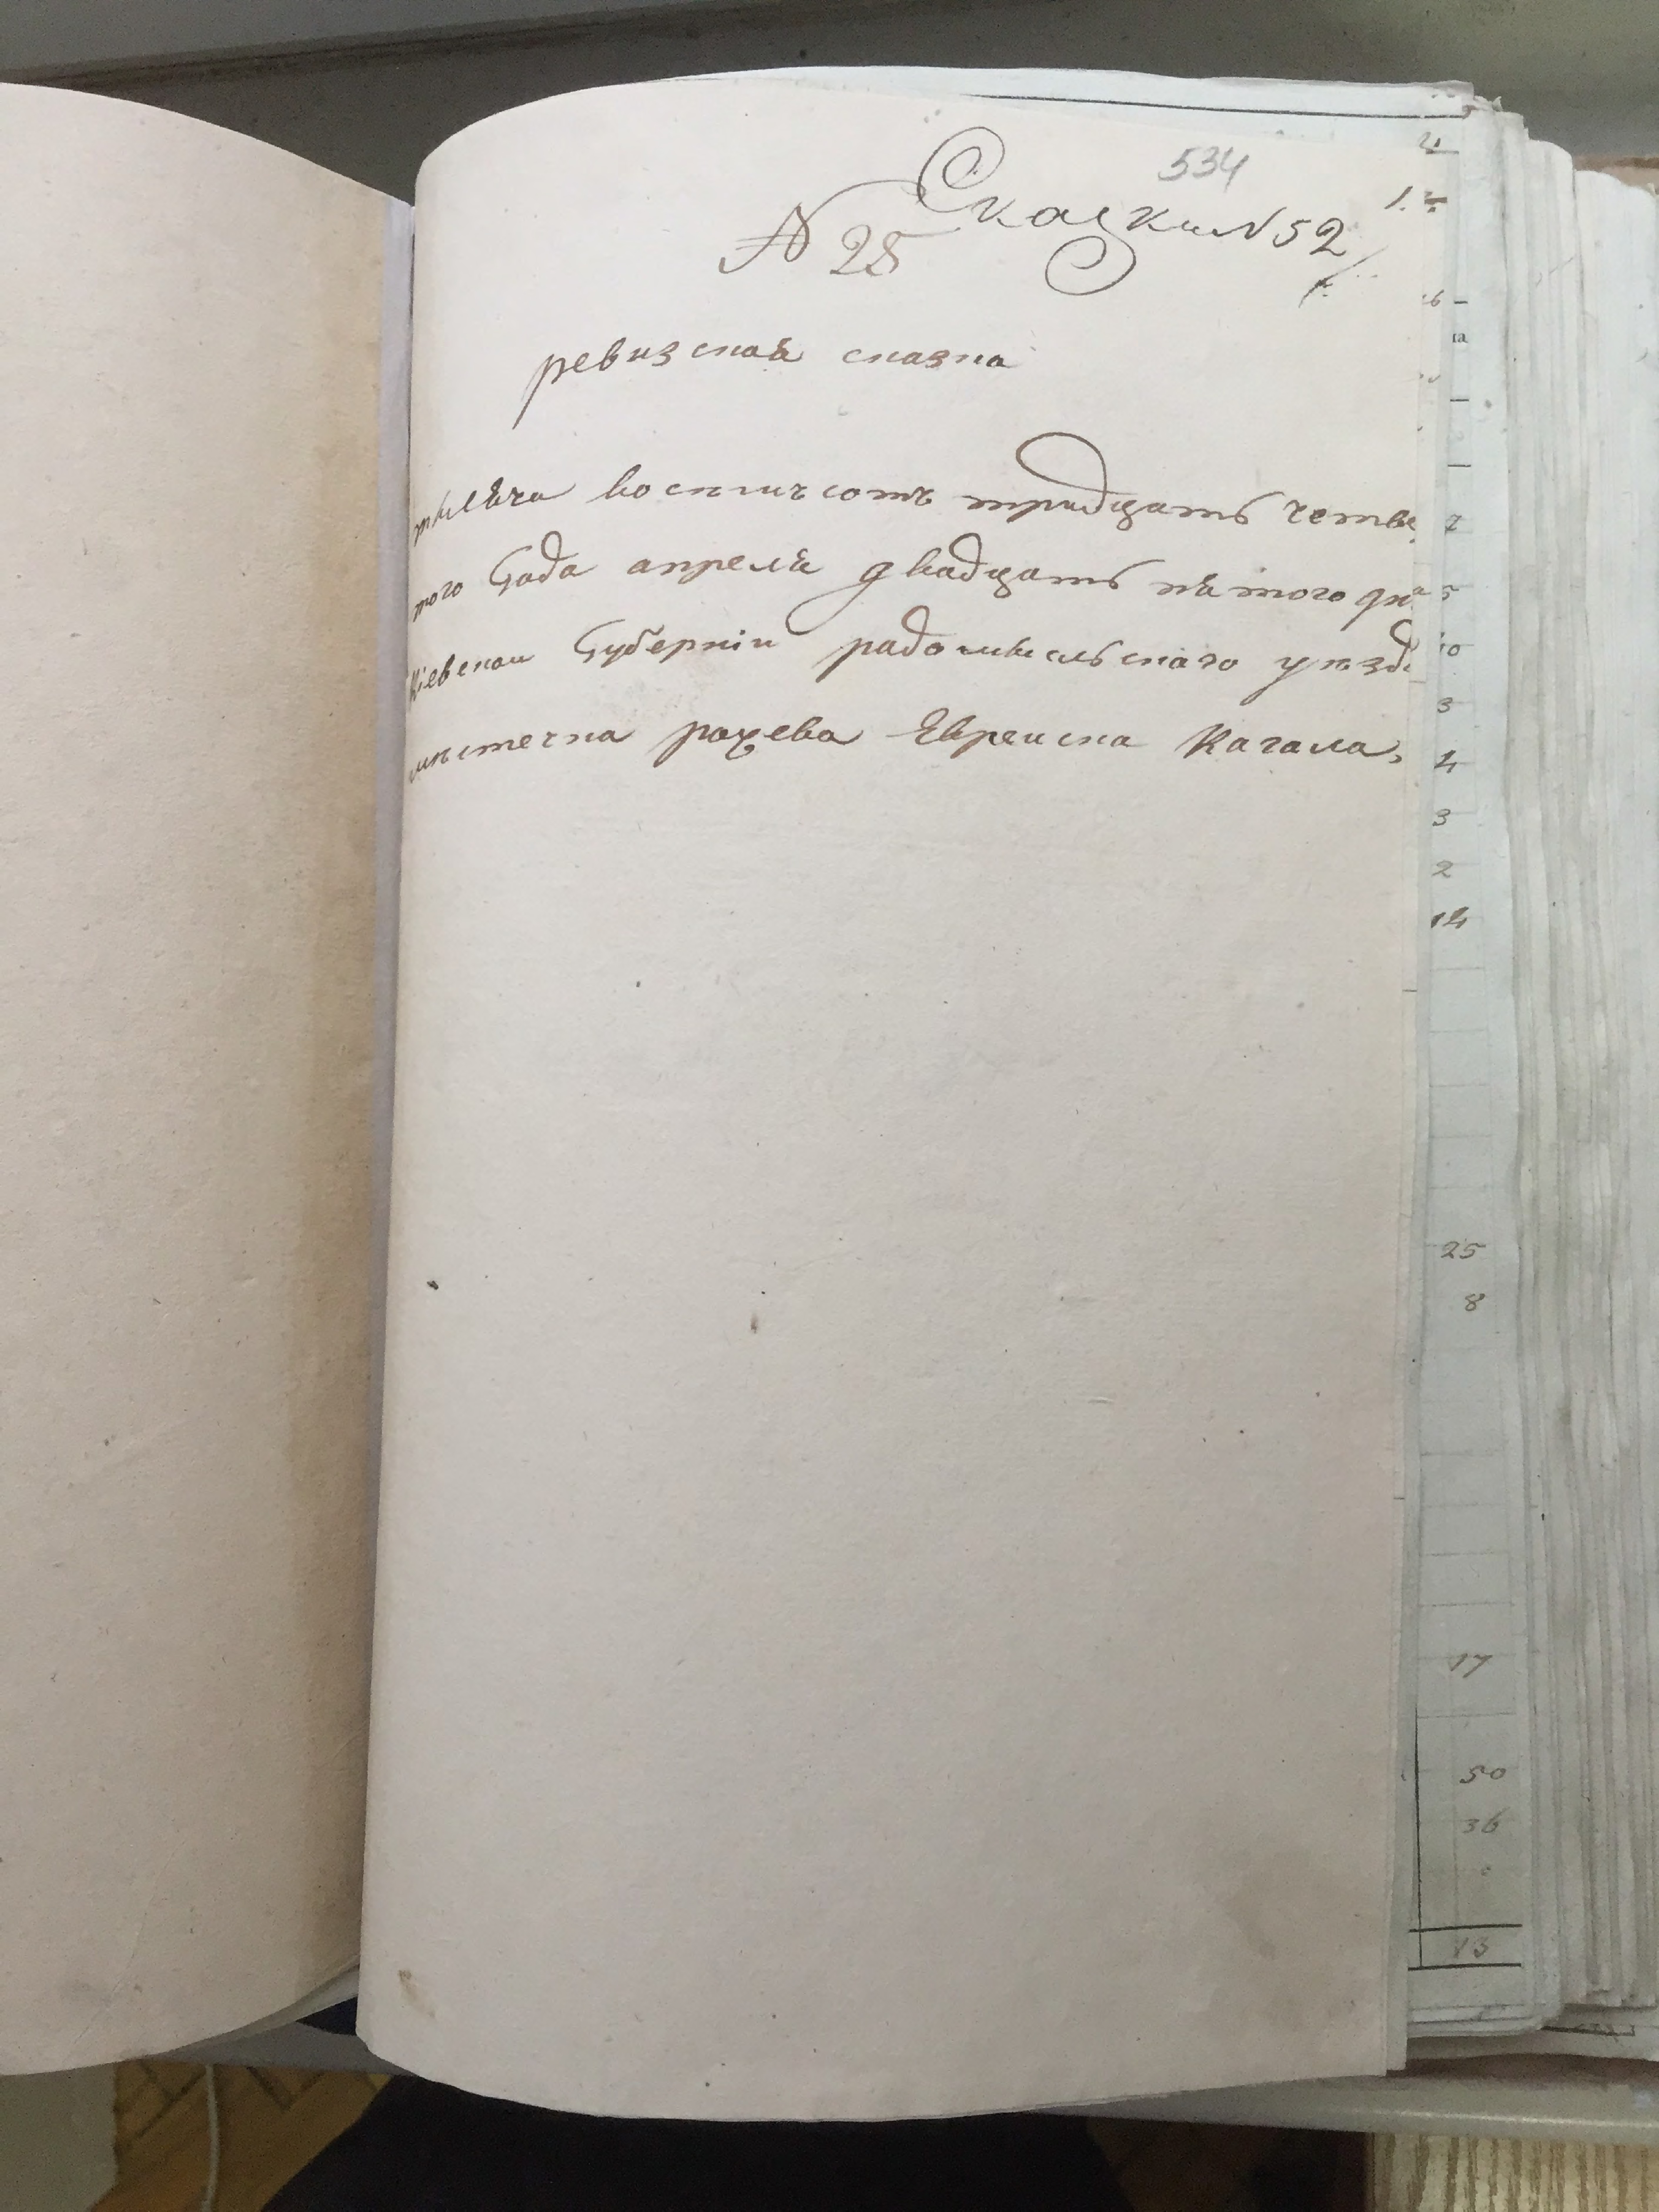 534
Сказки N 52
N 25
ревизская сказка
тысяча восемъ сотъ тридцать четве
того Года апреля двадцать пятого дня
Кіевской Губерніи радомысльскаго уѣзда
мѣстечка рожева Еврейска Кагала,
2
5
10
3
4
3
2
14
25
8
17
50
36
13